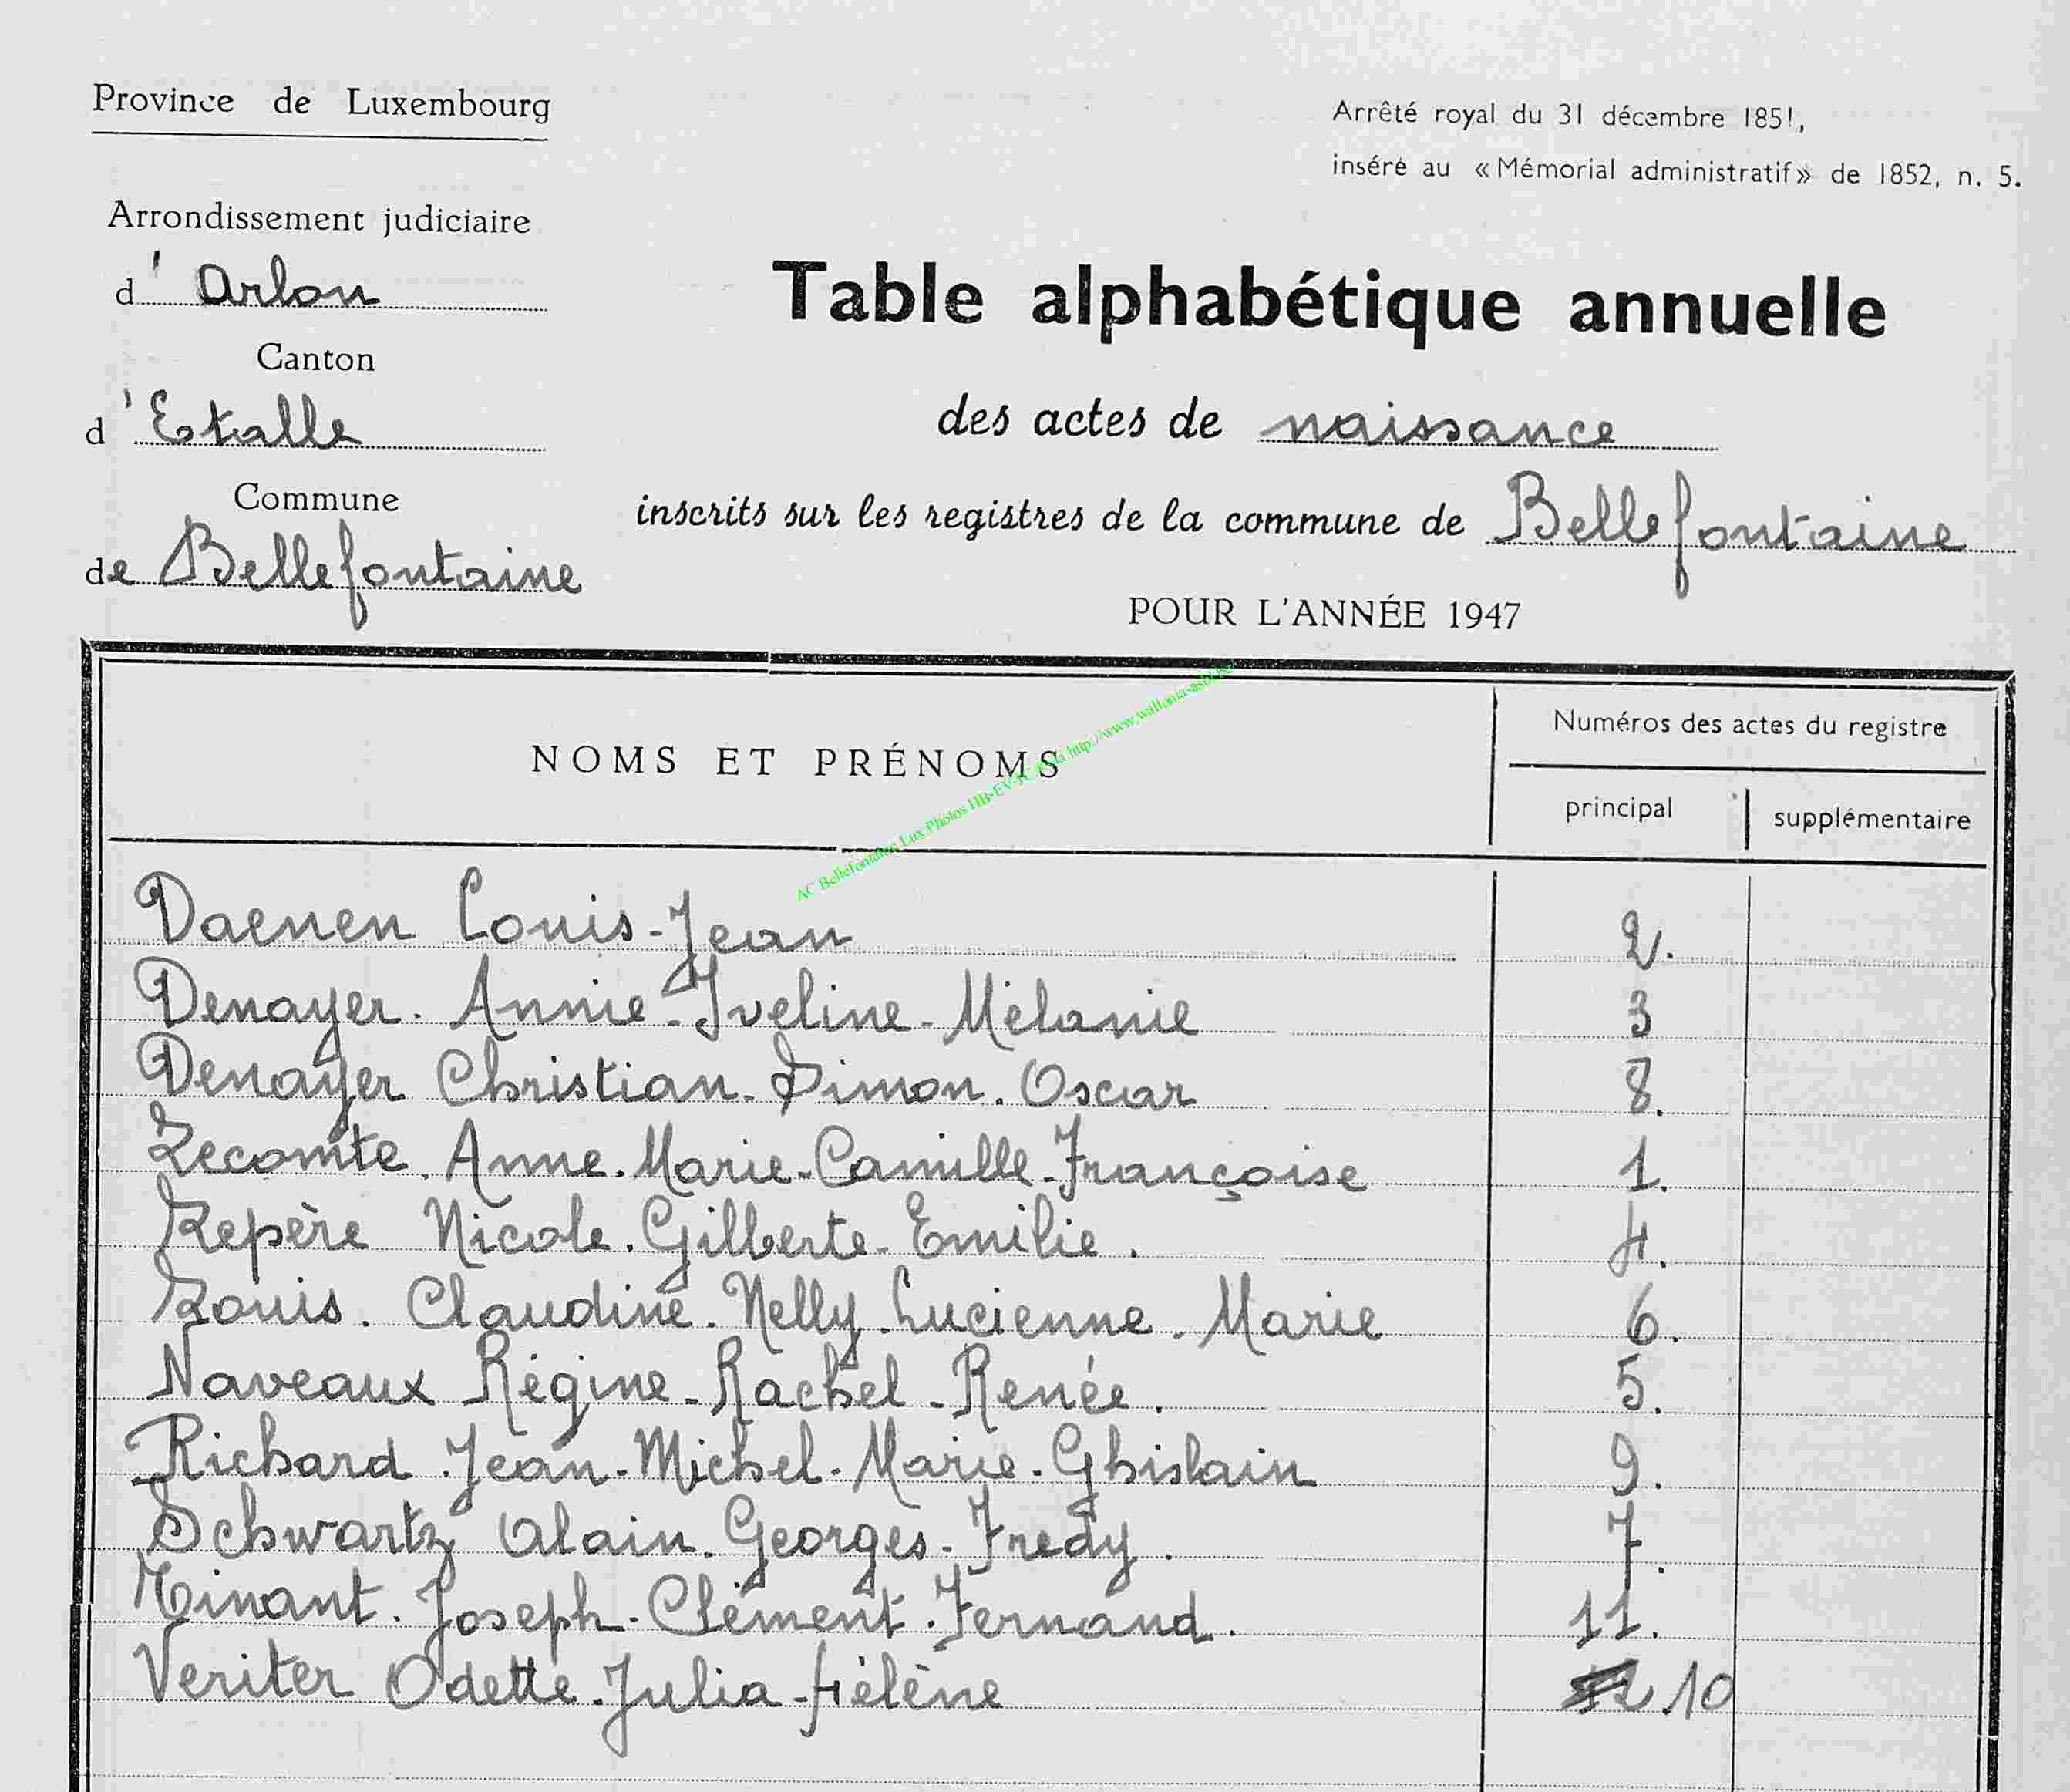 Province de Luxembourg
Arrêté royal du 31 décembre 1851,
inséré au «Mémorial administratif» de 1852, n. 5.
Arrondissement judiciaire
d' Arlon
Canton
d' Etalle
Commune
de Bellefontaine
Table alphabétique annuelle
des actes de naissance
inscrits sur les registres de la commune de Bellefontaine
POUR L'ANNÉE 1947
NOMS ET PRÉNOMS
Numéros des actes du registre
principal supplémentaire
AC Bellefontaine Lux Photos HB-EV-JC http://www.wallonia-asbl.be
Daenen Louis-Jean 2.
Denayer. Annie-Yveline-Mélanie 3
Denayer Christian. Simon. Oscar 8.
Lecomte. Anne. Marie-Camille-Françoise 1.
Lepère Nicole. Gilberte- Emilie. 4.
Louis. Claudine. Nelly. Lucienne. Marie 6.
Naveaux Régine-Rachel-Renée. 5.
Richard. Jean-Michel-Marie-Ghislain 9.
Schwartz Alain. Georges-Fredy. 7.
Tinant. Joseph-Clément. Fernand. 11.
Veriter Odette. Julia-Hélène 10